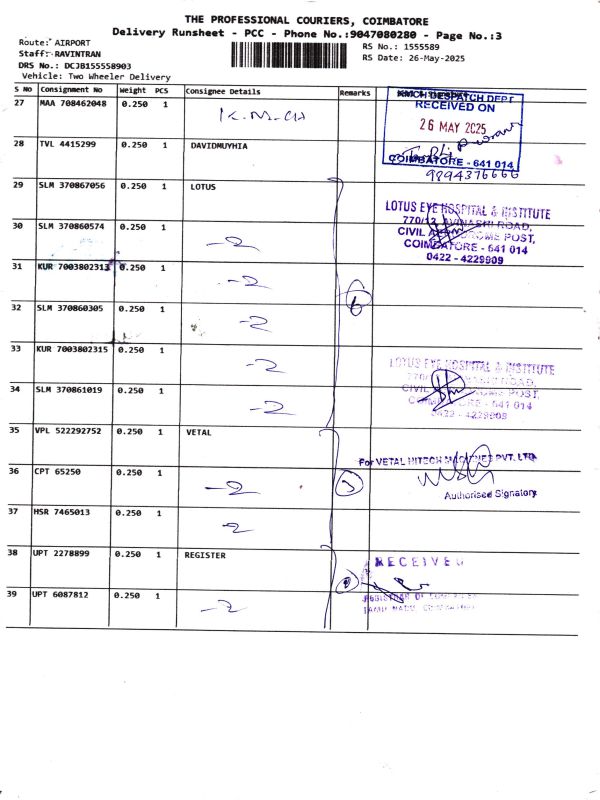 THE PROFESSIONAL COURIERS, COIMBATORE
Delivery Runsheet - PCC - Phone No.:9047080280 - Page No.:3
Route: AIRPORT
Staff: RAVINTRAN
DRS No.: DCJB155558903
Vehicle: Two Wheeler Delivery
RS No.: 1555589
RS Date: 26-May-2025
S NO Consignment No Weight PCS Consignee Details Remarks
27 MAA 708462048 0.250 1 K.M.CH
KMCH DESPATCH DEPT
RECEIVED ON
26 MAY 2025
COIMBATORE - 641 014
9894376666
28 TVL 4415299 0.250 1 DAVIDMUYHIA
29 SLM 370867056 0.250 1 LOTUS
LOTUS EYE HOSPITAL & INSTITUTE
770/12, AVINASHI ROAD,
CIVIL AERODROME POST,
COIMBATORE - 641 014
0422 - 4229909
30 SLM 370860574 0.250 1 -2
31 KUR 7003802313 0.250 1 -2
6
32 SLM 370860305 0.250 1 -2
33 KUR 7003802315 0.250 1 -2
LOTUS EYE HOSPITAL & INSTITUTE
ROAD,
CIVIL POST,
- 641 014
0422 - 4229909
34 SLM 370861019 0.250 1 -2
35 VPL 522292752 0.250 1 VETAL
For VETAL HITECH MACHINES PVT. LTD
Authorised Signatory
36 CPT 65250 0.250 1 -2
37 HSR 7465013 0.250 1 -2
38 UPT 2278899 0.250 1 REGISTER
RECEIVED
39 UPT 6087812 0.250 1 -2
REGISTRAR OF COMPANIES
TAMIL NADU, COIMBATORE